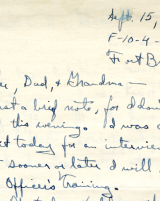 Sept. 15,
F-10-4-
Fort B
, Dad, & Grandma—
a brief note, for I don
this evening. I was
today for an interview
sooner or later I will
Officers Training.